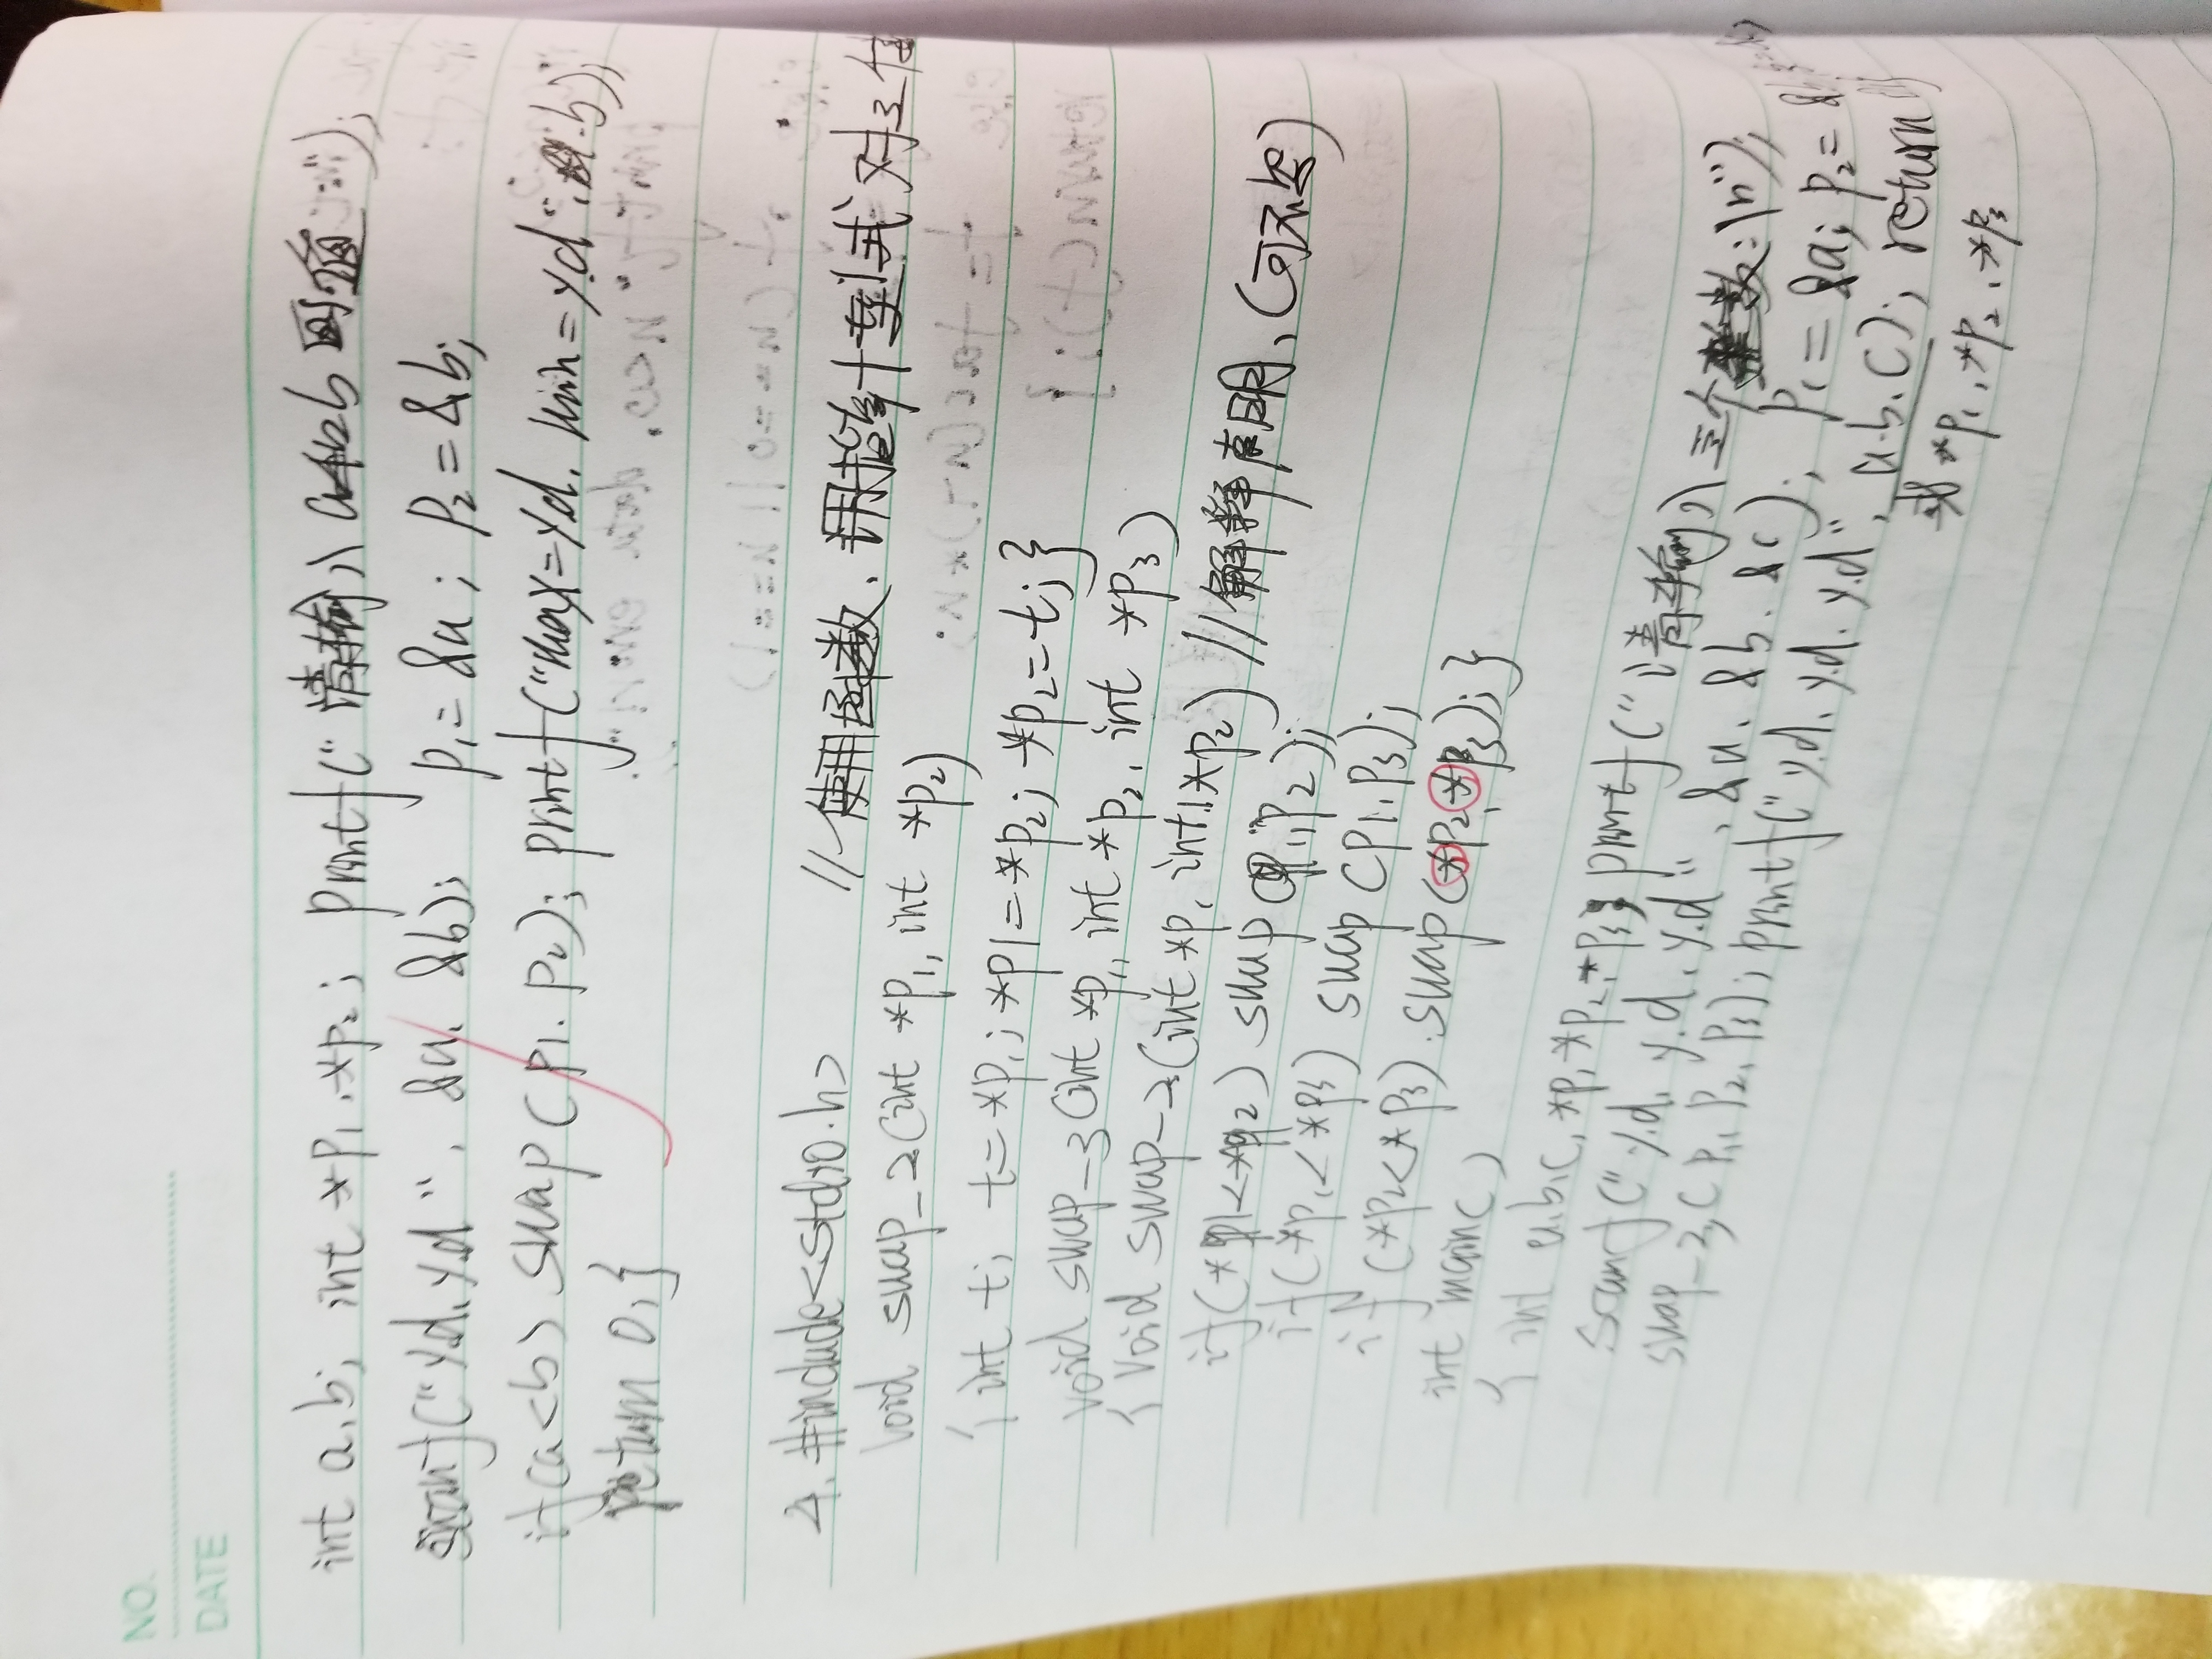 NO.
DATE
int a,b; int *p1,*p2; printf("请输入a和b的值:");
scanf("%d,%d", &a, &b); p1=&a; p2=&b;
if(a<b) swap(p1,p2); printf("max=%d, min=%d",a,b);
return 0;}
4. #include<stdio.h> //使用函数,用指针型式对三个
void swap_2(int *p1, int *p2)
{int t; t=*p1; *p1=*p2; *p2=t;}
void swap_3(int *p1, int *p2, int *p3)
{void swap_2(int *p, int *p2) //解释声明,(可不写)
if(*p1<*p2) swap(p1,p2);
if(*p1<*p3) swap(p1,p3);
if(*p2<*p3) swap(*p2,*p3);}
int main()
{int a,b,c,*p1,*p2,*p3; printf("请输入三个整数:\n");
scanf("%d,%d,%d", &a,&b,&c); p1=&a; p2=&b;
swap_3(p1,p2,p3); printf("%d,%d,%d", a,b,c); return
或*p1,*p2,*p3